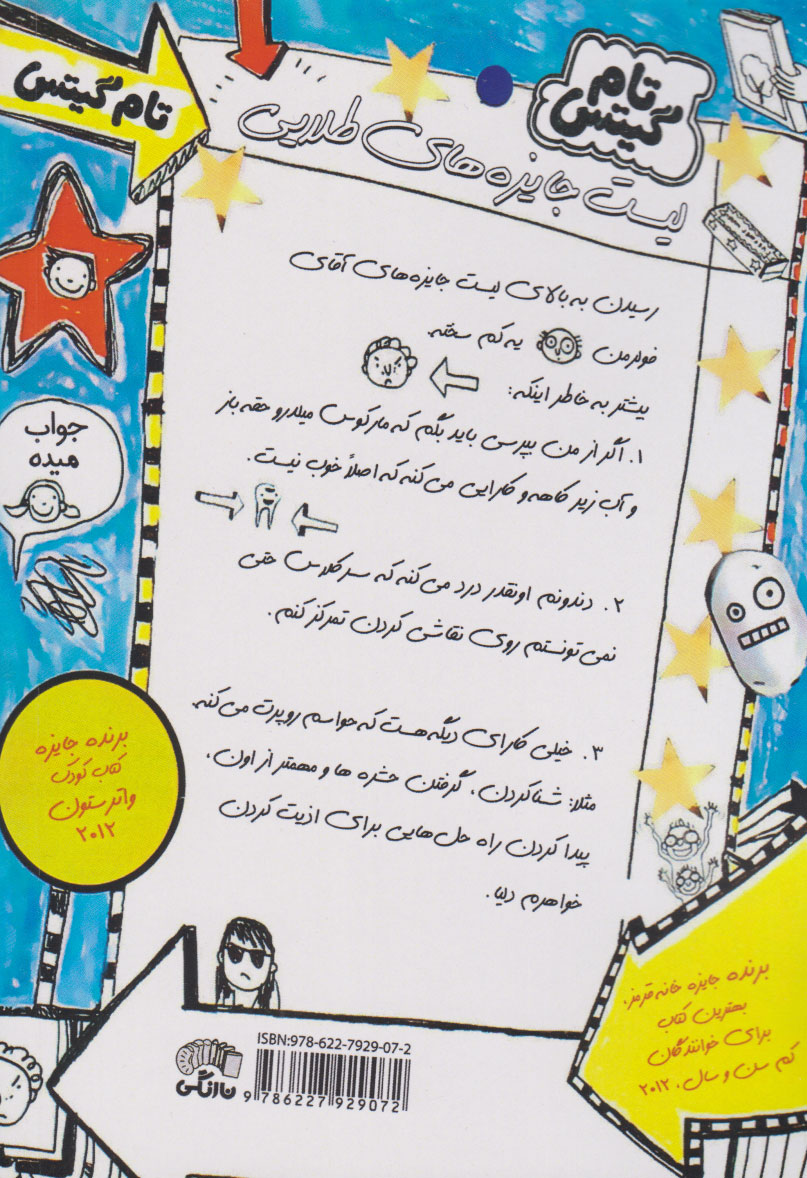 تام گیتس
تام
گیتس
لیست جایزه های طلایی
رسیدن به بالای لیست جایزه های آقای
فولرمن یه کم سخته.
بیشتر به خاطر اینکه:
۱. اگر از من بپرسی باید بگم که مارکوس میلدرو حقه باز
و آب زیر کاهه و کارایی می کنه که اصلاً خوب نیست.
۲. دندونم اونقدر درد می کنه که سر کلاس حتی
نمی تونستم روی نقاشی کردن تمرکز کنم.
۳. خیلی کارای دیگه هست که حواسم رو پرت می کنه.
مثلا: شنا کردن، گرفتن حشره ها و مهمتر از اون،
پیدا کردن راه حل هایی برای اذیت کردن
خواهرم دلیا.
جواب
میده
برنده جایزه
کتاب کودک
واترستون
۲۰۱۲
برنده جایزه خانه قرمز،
بهترین کتاب
برای خوانندگان
کم سن و سال، ۲۰۱۲
ISBN:978-622-7929-07-2
9 786227 929072
نارنگی